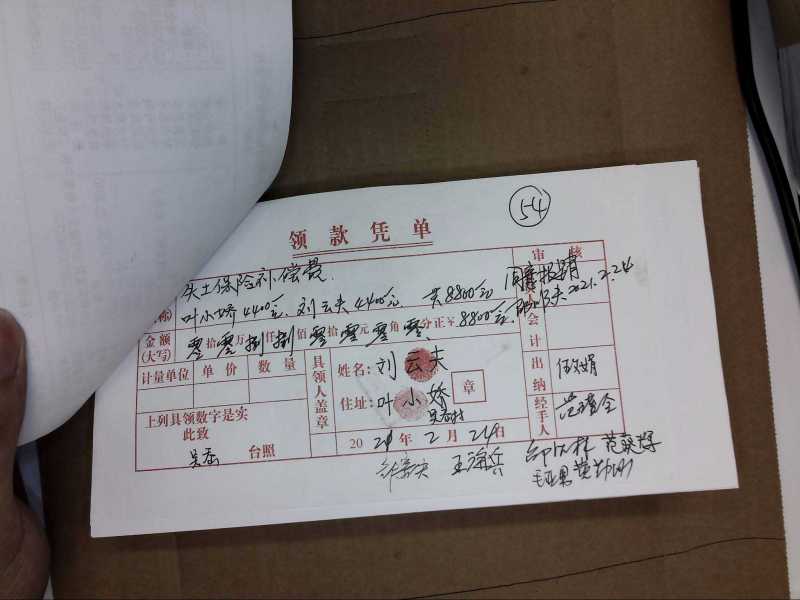 54
领款凭单
失土保险补偿费 审核
称 叶小娇4400元,刘云夫4400元 共8800元 同意报销
2021.2.24
金额(大写) 零拾零万捌仟捌佰零拾零元零角零分正¥8800元 会计
计量单位 单价 数量 具领人盖章 姓名:刘云夫 出纳 伍文娟
上列具领数字是实 住址:叶小娇 章 经手人
此致 吴岙村
吴岙 台照 2021年2月24日
王海兵